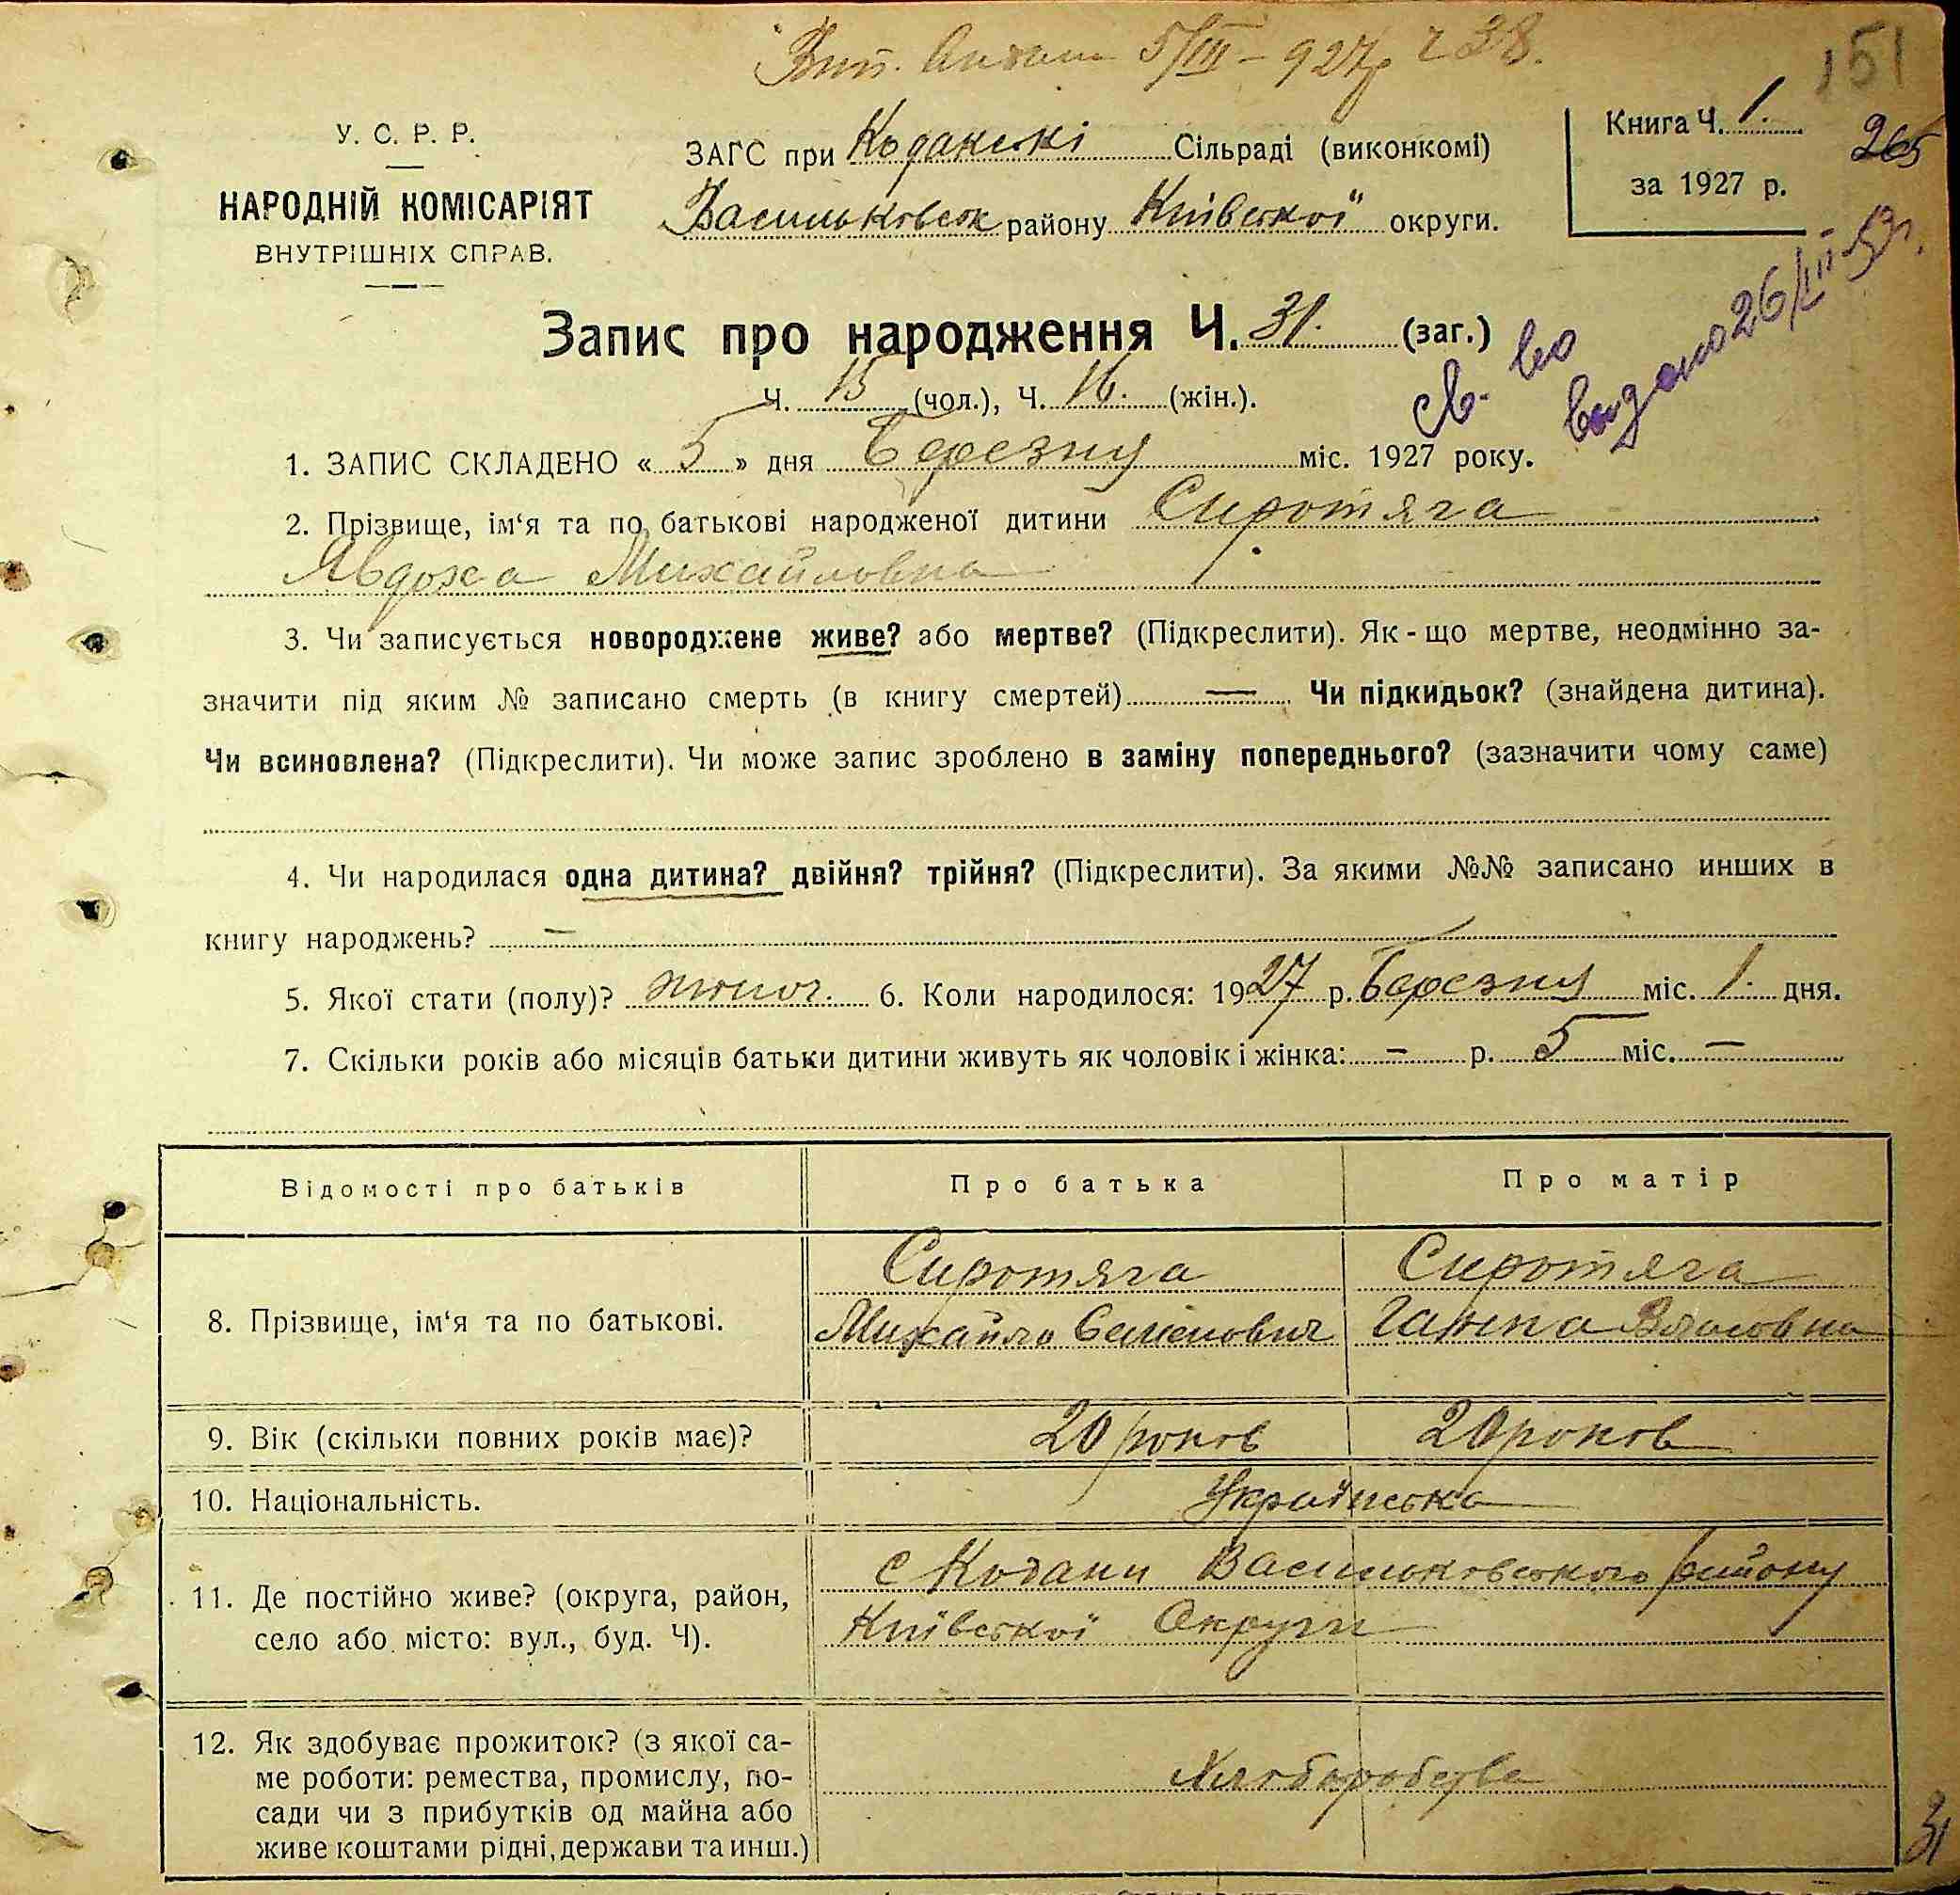 Вип. видана 5/III – 927р ч 38.
151
У. С. Р. Р.
НАРОДНІЙ КОМІСАРІЯТ
ВНУТРІШНІХ СПРАВ.
ЗАГС при Кодакські Сільраді (виконкомі)
Васильковськ району Київської округи.
Книга Ч. 1.
за 1927 р.
265
Запис про народження Ч. 31. (заг.)
Ч. 15 (чол.), Ч. 16. (жін.).
св-во
видано 26/III-53г.
1. ЗАПИС СКЛАДЕНО « 5 » дня Березня міс. 1927 року.
2. Прізвище, ім‘я та по батькові народженої дитини Сиротяга
Явдоха Михайловна
3. Чи записується новороджене живе? або мертве? (Підкреслити). Як-що мертве, неодмінно за-
значити під яким № записано смерть (в книгу смертей) — Чи підкидьок? (знайдена дитина).
Чи всиновлена? (Підкреслити). Чи може запис зроблено в заміну попереднього? (зазначити чому саме)
4. Чи народилася одна дитина? двійня? трійня? (Підкреслити). За якими №№ записано инших в
книгу народжень? —
5. Якої стати (полу)? жіноч. 6. Коли народилося: 1927 р. Березня міс. 1. дня.
7. Скільки років або місяців батьки дитини живуть як чоловік і жінка: – р. 5 міс. –
Відомості про батьків
Про батька
Про матір
8. Прізвище, ім‘я та по батькові.
Сиротяга
Михайло Семенович
Сиротяга
Ганна Власовна
9. Вік (скільки повних років має)?
20 років
20 років
10. Національність.
Українська
11. Де постійно живе? (округа, район,
село або місто: вул., буд. Ч).
с Кодаки Васильковського району
Київської Округи
12. Як здобуває прожиток? (з якої са-
ме роботи: ремества, промислу, по-
сади чи з прибутків од майна або
живе коштами рідні, держави та инш.)
Хліборобство
31